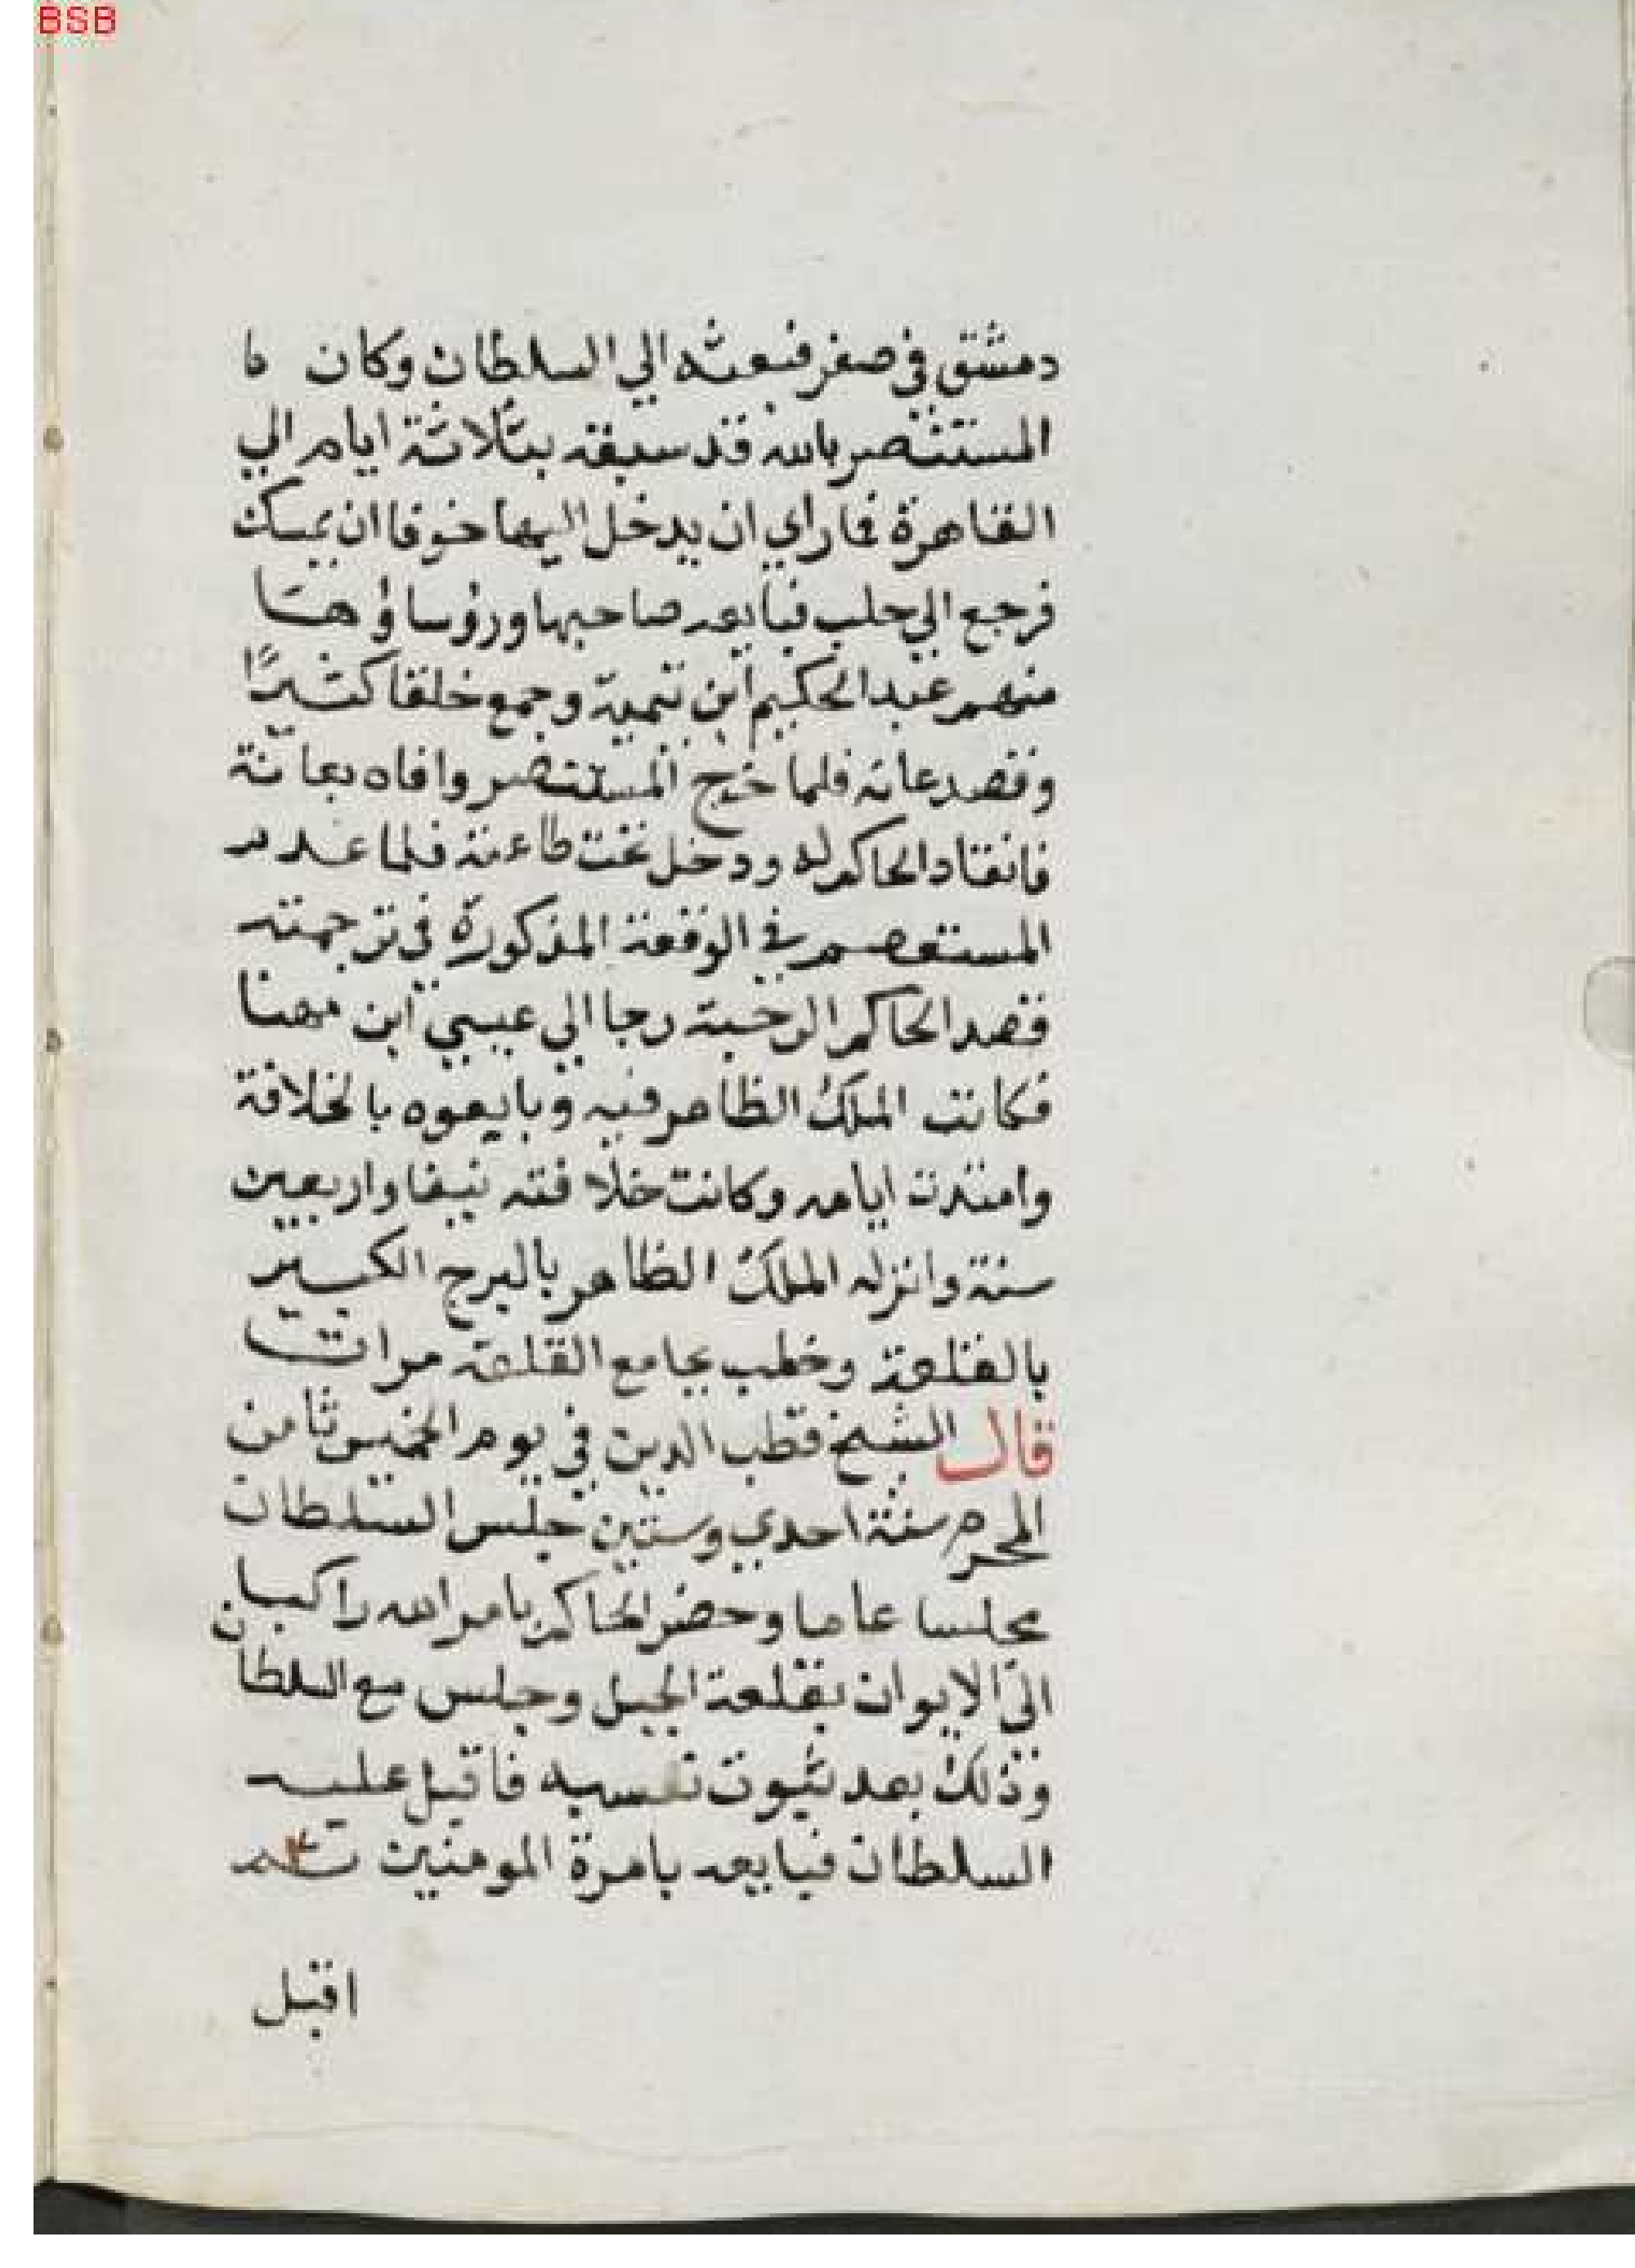 BSB
دمشق في صفر فبعثه الي السلطان وكان
المستنصر بالله قد سبقه بثلاثة ايام الي
القاهرة فما راي ان يدخل اليها خوفا ان يمسك
فرجع الي حلب فبايعه صاحبها ورؤساؤها
منهم عبد الحكيم ابن تيمية وجمع خلقا كثيرًا
وقصد عانه فلما خرج المستنصر وافاه بعانة
فانقاد الحاكم له ودخل تحت طاعته فلما
المستعصم في الوقعة المذكورة في ترجمته
قصد الحاكم الرحبة رجا الي عيسي ابن مهنا
فكاتب الملك الظاهر فيه وبايعوه بالخلافة
وامتدت ايامه وكانت خلافته نيفا واربعين
سنة وانزله الملك الظاهر بالبرج الكبير
بالقلعة وخطب بجامع القلعة مرات
قال الشيخ قطب الدين في يوم الخميس ثامن
المحرم سنة احدي وستين جلس السلطان
مجلسا عاما وحضر الحاكم بامر الله راكبا
الي الايوان بقلعة الجبل وجلس مع السلطان
وذلك بعد ثبوت نسبه فاقبل عليه
السلطان فبايعه بامرة المومنين ثم
اقبل